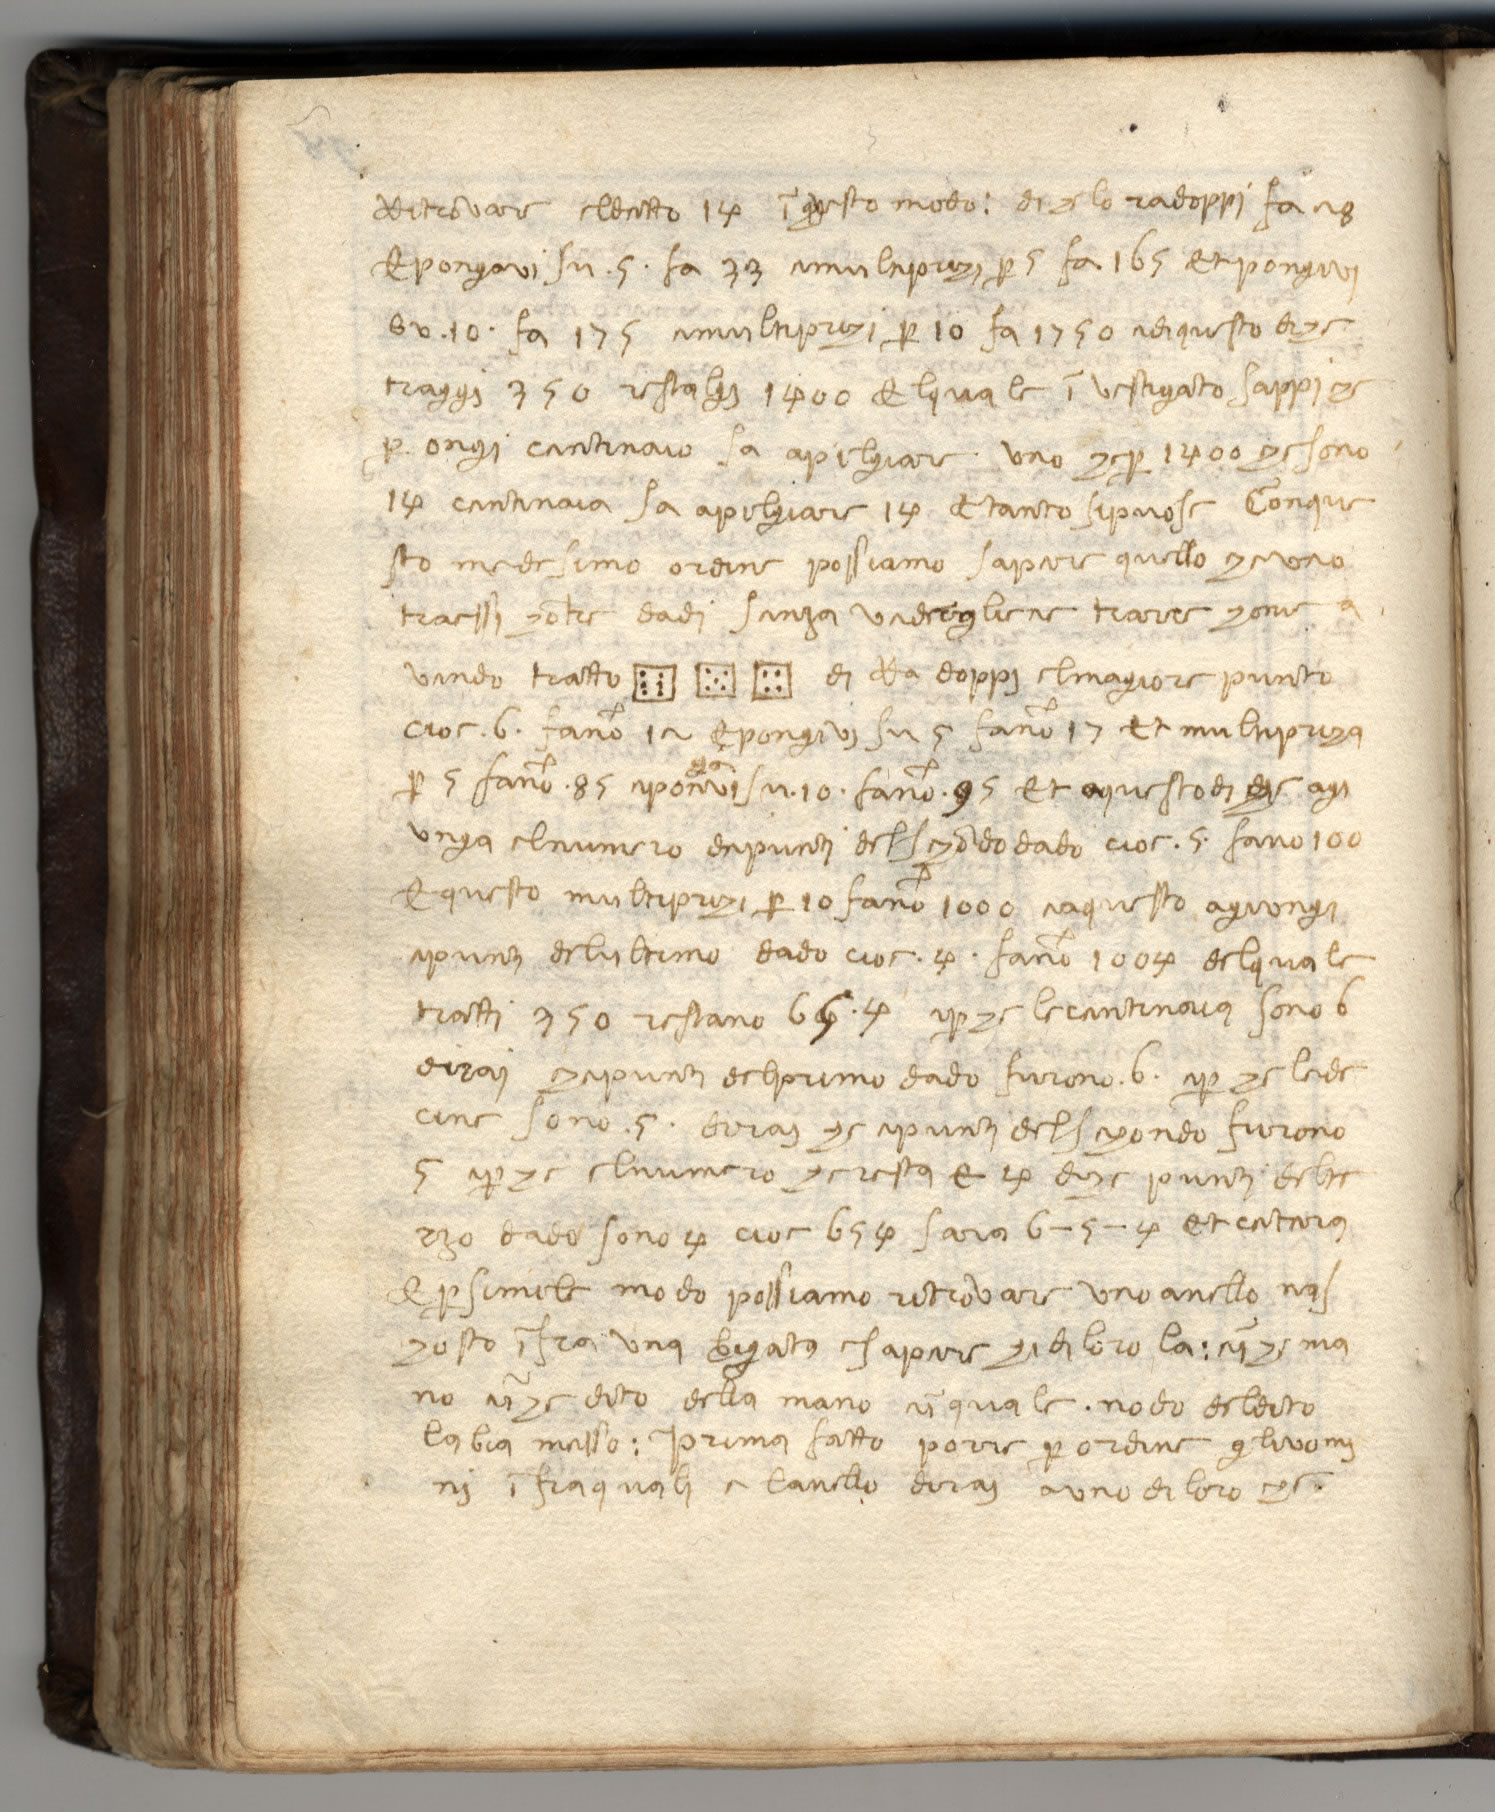 Ritrovare eldetto 14 ĩ questo modo: di ɀe lo radoppi fa 28
E pongavi su .5. fa 33 emultiprizi ꝑ 5 fa 165 et pongivi
su .10. fa 175 emultiprizi ꝑ 10 fa 1750 ediquesto diɀe
traggi 350 restalgi 1400 elquale ĩ vestigato sappi ɀe
ꝑ ongi centinaio sa apilgiare uno ɀe ꝑ 1400 ɀe sono
14 centinaia sa apilgiare 14 e tanto sipuose Conque
sto medesimo ordine possiamo sapere quello ɀe uno
traessi ɀõ tre dadi sanza vedergliene trarre ɀome a
vendo tratto ⚅ ⚄ ⚃ di Radoppi elmagiore punto
cioe .6. fanno 12 e pongivi su 5 fanno 17 et multipriza
ꝑ 5 fanno .85 epongavi su .10. fanno .95 et aquesto di ɀe agi
unga elnumero depunti delseɀõdo dado cioe .5. fano 100
E questo multiprizi ꝑ 10 fanno 1000 eaquesto agiongi
epunti delultimo dado cioe .4. fanno 1004 delquale
tratti 350 restano 65.4 eꝑ ɀe lecentinaia sono 6
dirai ɀe epunti delprimo dado furono .6. eꝑ ɀe lede
cine sono .5. dirai ɀe epunti delseɀondo furono
5 eꝑ ɀe elnumero ɀe resta e 4 diɀe punti delte
rzo dado sono 4 cioe 654 sara 6-5-4 et cetera
E ꝑ simile modo possiamo ritrovare uno anello nas
ɀosto ĩfra una brigata esapere ɀi di loro la: eĩ ɀe ma
no eĩ ɀe dito della mano eĩ quale nodo deldito
labia messo: Prima fatto porre ꝑ ordine gliuomi
ni ĩ fraquali e lanello dirai auno di loro ɀe